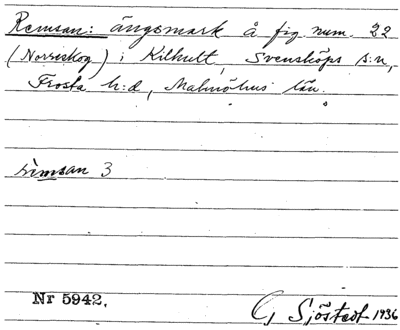 Remsan: ängsmark å fig. num. 22
(Norreskog) i Kilhult, Svensköps s:n,
Frosta h:d, Malmöhus län.
rèmsan 3
Nr 5942.
G Sjöstedt 1936